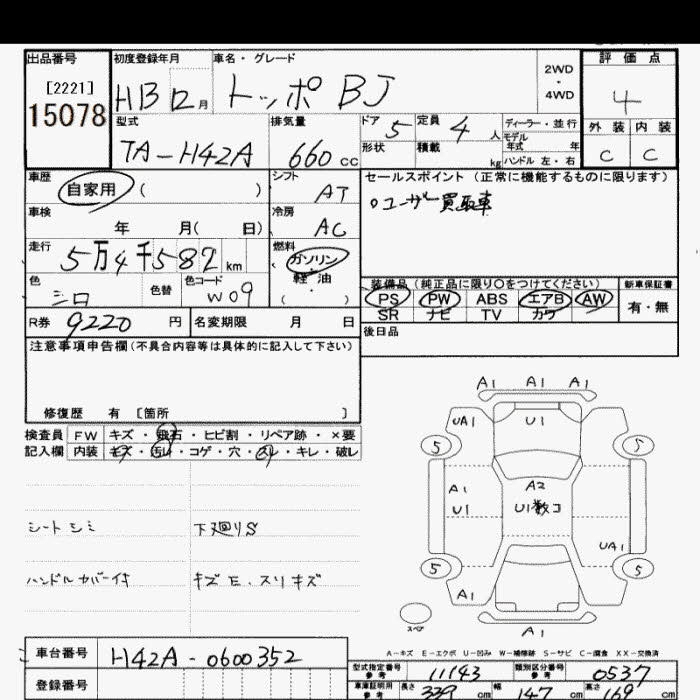 出品番号
[2221]
15078
初度登録年月
H13 12月
車名・グレード
トッポ BJ
2WD
・
4WD
評価点
4
外装 内装
C C
型式
TA-H42A
排気量
660 CC
ドア 5
定員 4 人
形状
積載 kg
ディーラー・並行
モデル
年式 年
ハンドル 左・右
車歴
自家用 ( )
シフト
AT
車検
年 月( 日)
冷房
AC
走行
5万4千582 km
燃料
ガソリン
・
軽油
( )
色
シロ
色替
色コード
W09
R券 9220 円
名変期限 月 日
セールスポイント (正常に機能するものに限ります)
○ユーザー買取車
装備品 (純正品に限り○をつけてください)
PS PW ABS エアB AW
SR ナビ TV カワ
新車保証書
有・無
後日品
注意事項申告欄(不具合内容等は具体的に記入して下さい)
修復歴 有 [箇所 ]
検査員
記入欄
FW キズ・飛石・ヒビ割・リペア跡・×要
内装 キズ・汚レ・コゲ・穴・スレ・キレ・破レ
シートシミ
下廻りS
ハンドルカバー付
キズ E、スリキズ
A1 A1 A1
UA1 U1
5 5
A1 A2
U1 U1数コ
UA1
5 5
A1
スペア
A1
A-キズ E-エクボ U-凹み W-補修跡 S-サビ C-腐食 XX-交換済
車台番号 H42A-0600352
登録番号
型式指定番号
参考
11143
類別区分番号
参考
0537
車庫証明用
参考
長さ 339 cm 幅 147 cm 高さ 169 cm